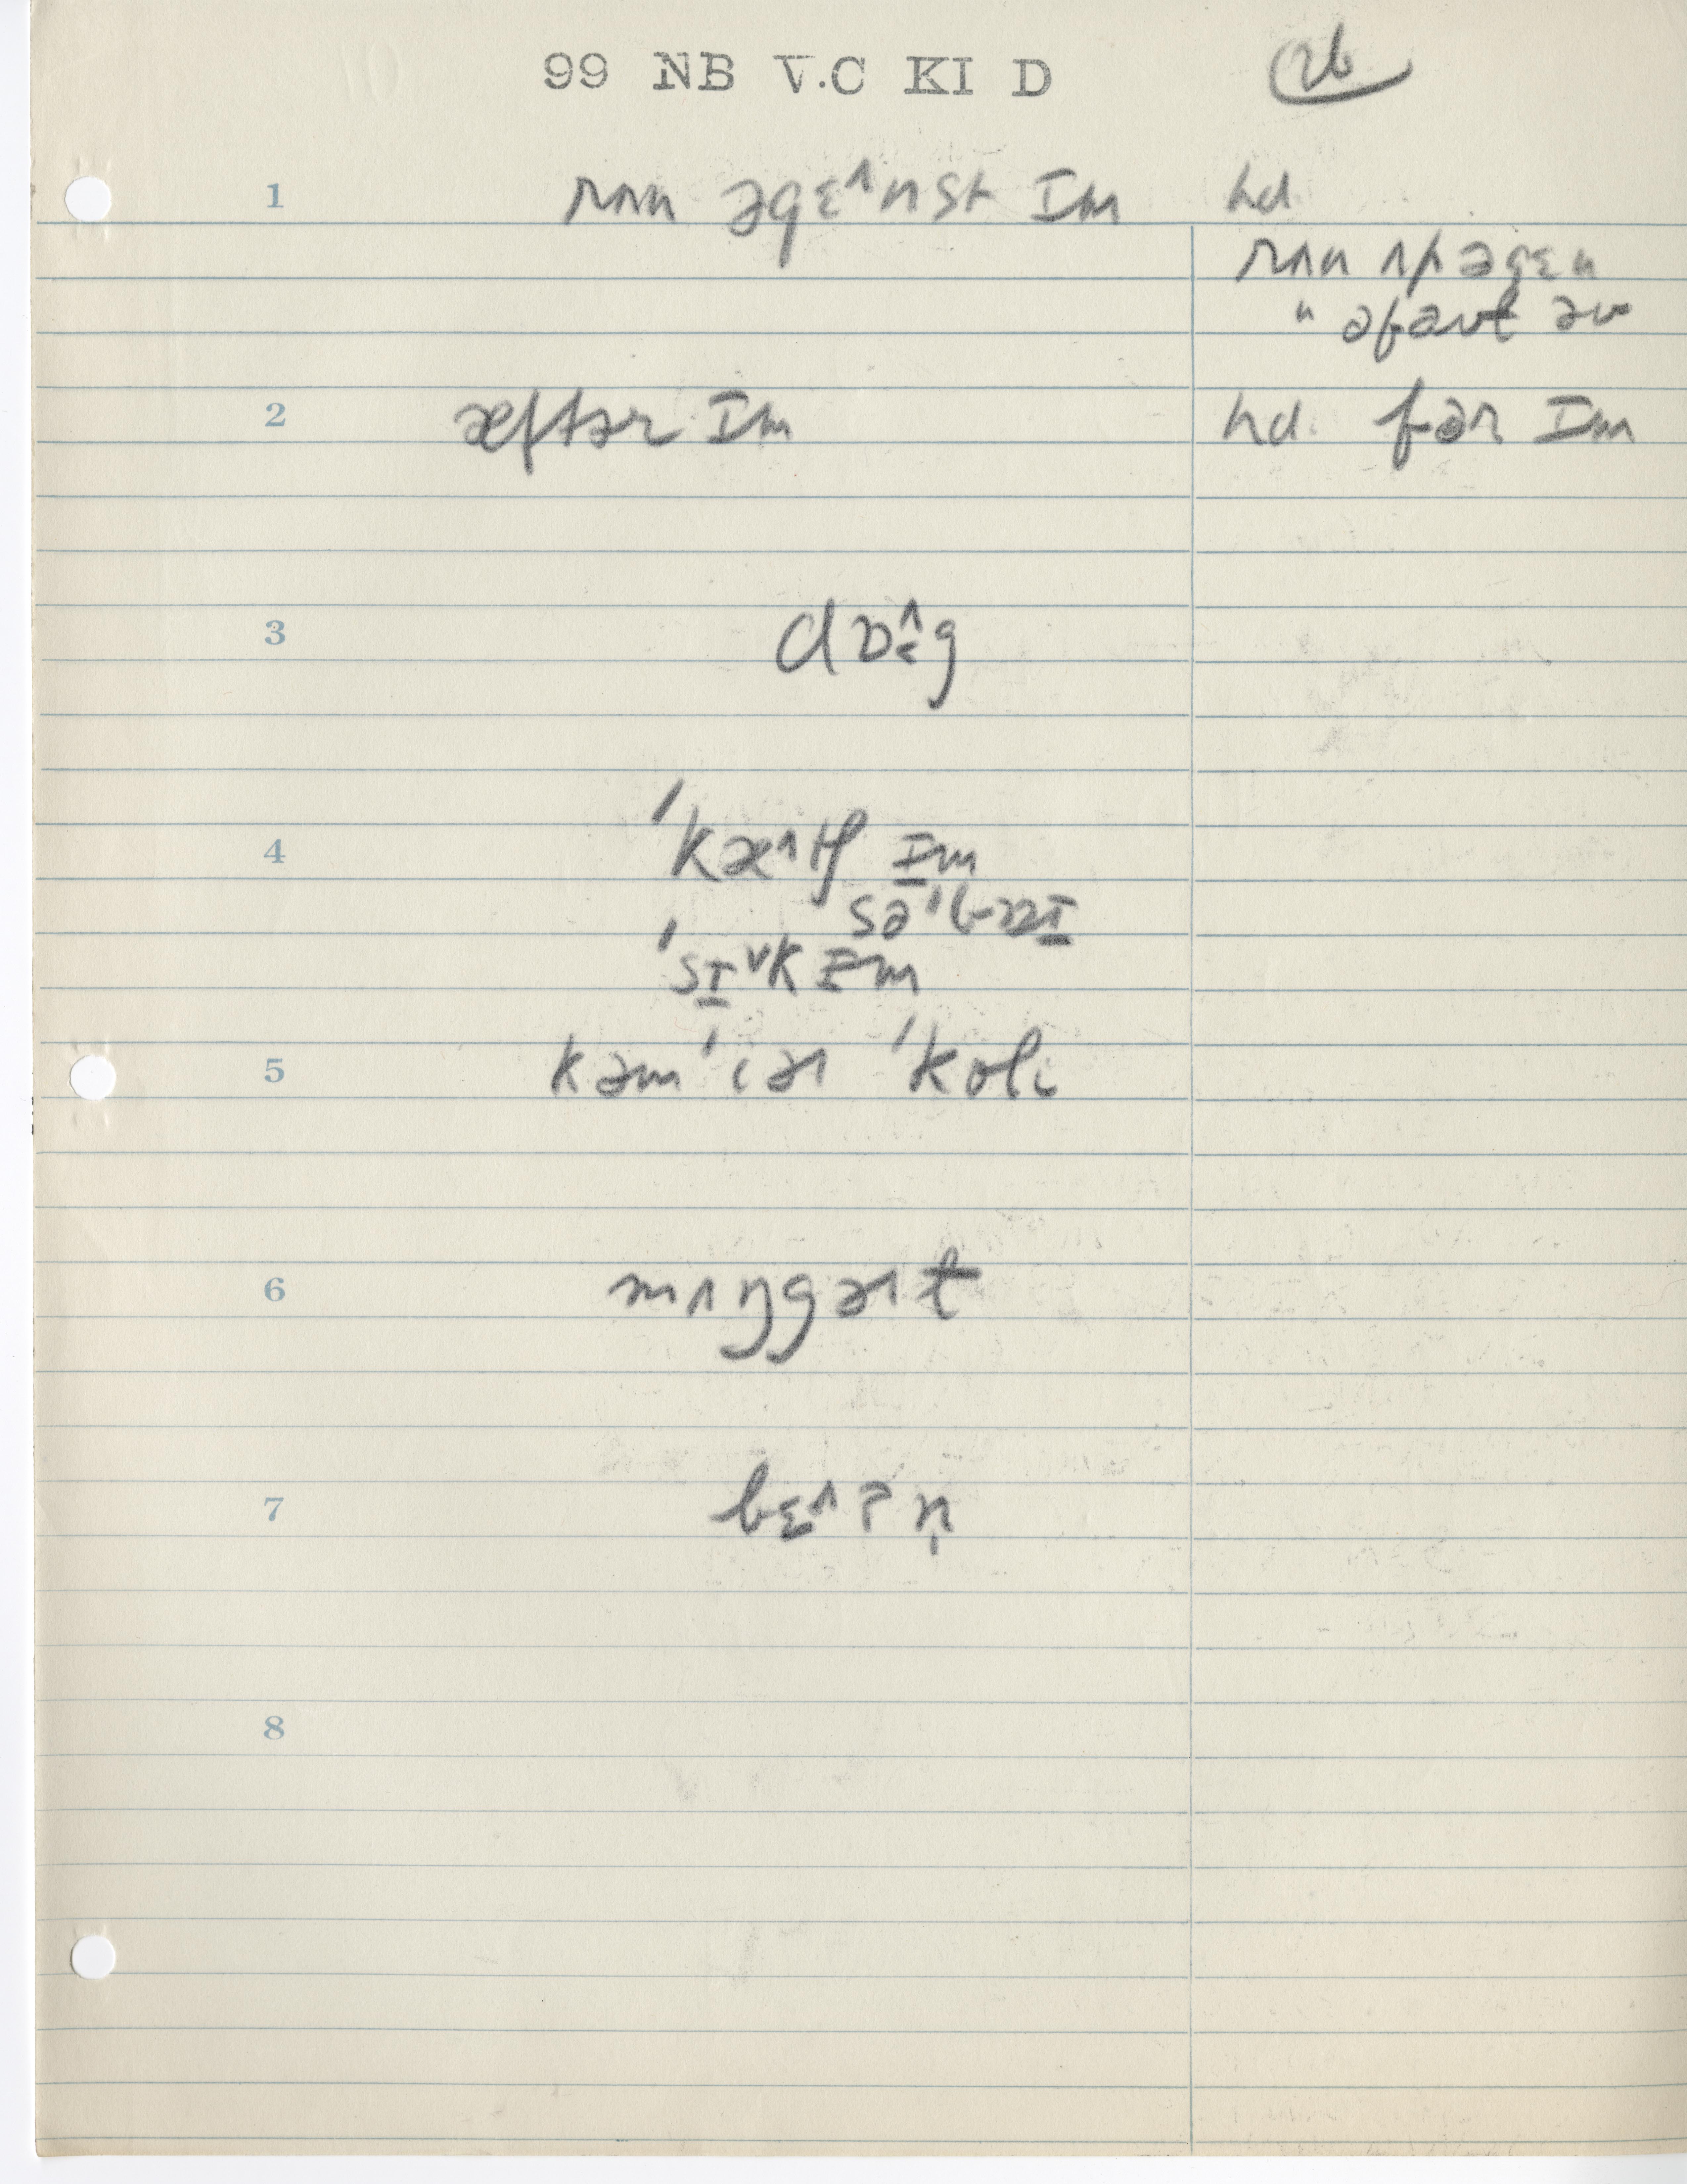 99 NB V.C KI D 26
1 rʌn əgɛ^nst Im hd
rʌn ʌp əgɛn
" əbaʊt əv
2 æftər Im hd. fər Im
3 dɒ^g
4 ˈkæ^tʃ Im
sə ˈbɒɪ
ˈsɪˇk Im
5 kəmˈiər ˈkoli
6 mʌŋgərt
7 bɛ^ʔn̩
8